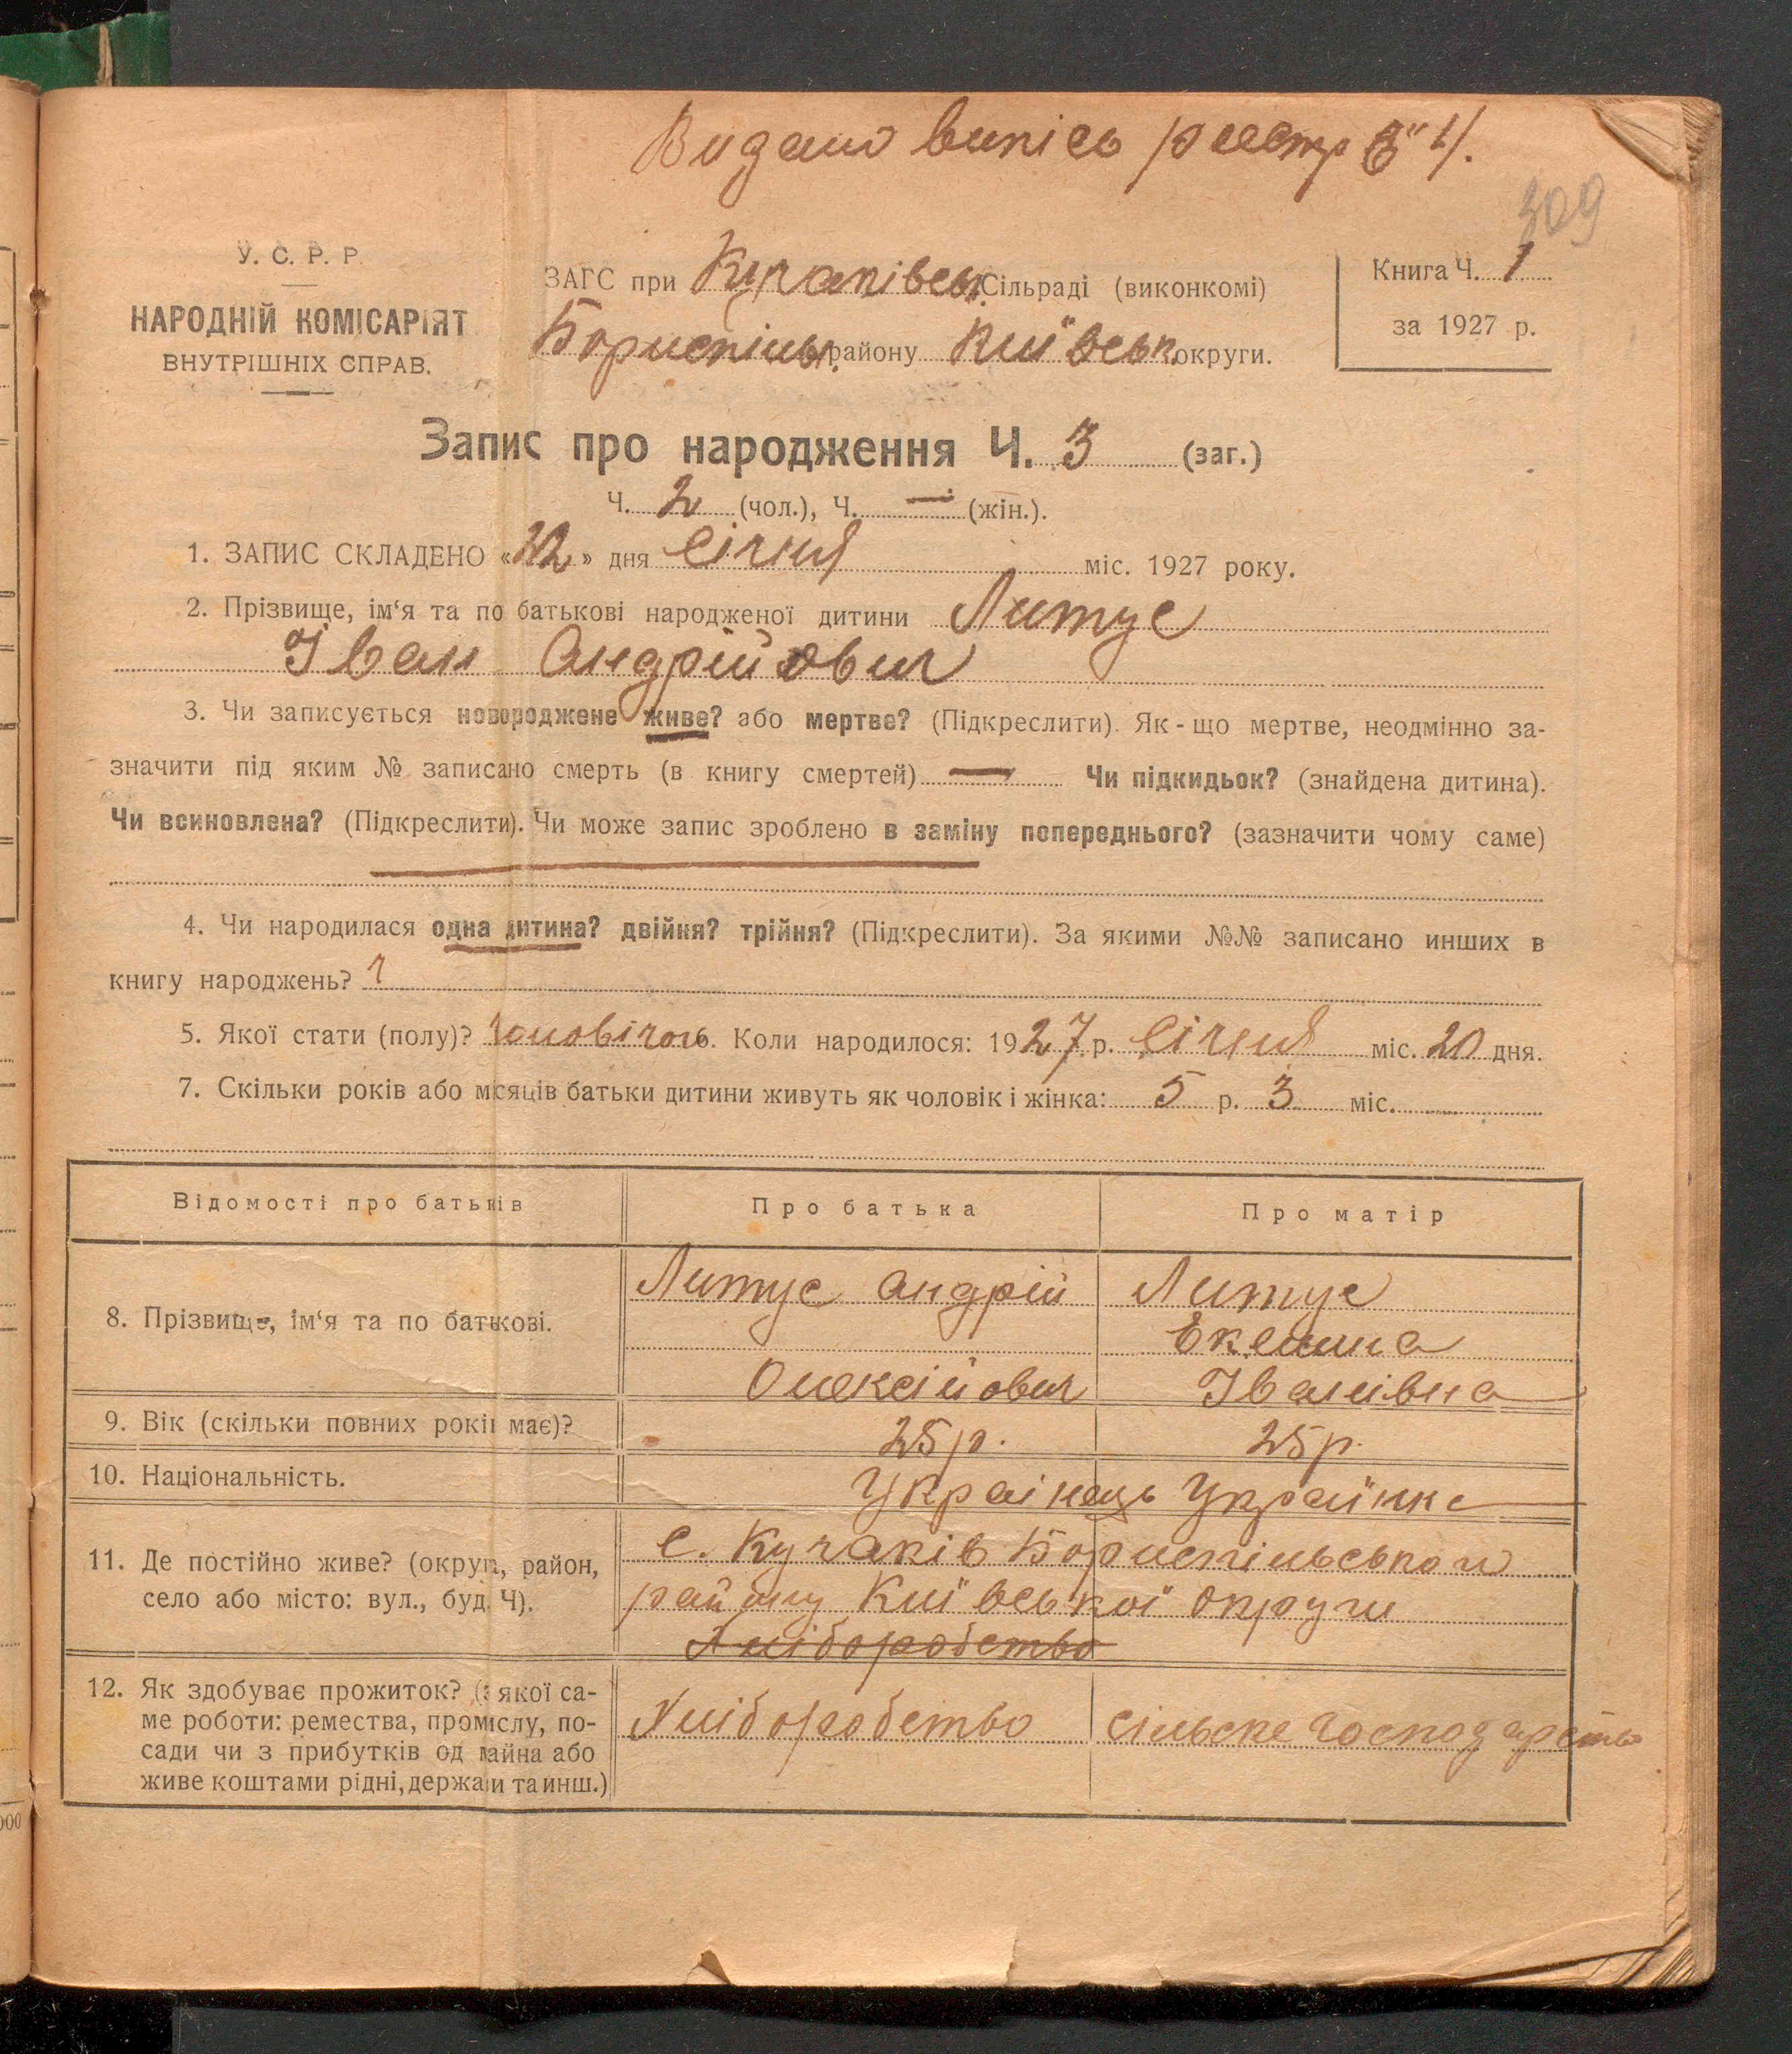 Видано випісь реєстр
309
У. С. Р. Р.
НАРОДНІЙ КОМІСАРІЯТ
ВНУТРІШНІХ СПРАВ.
ЗАГС при Кучаківськ. Сільраді (виконкомі)
Бориспільськ. району Київськ. округи.
Книга Ч. 1
за 1927 р.
Запис про народження Ч. 3 (заг.)
Ч. 2 (чол.), Ч. — (жін.).
1. ЗАПИС СКЛАДЕНО «22» дня Січня міс. 1927 року.
2. Прізвище, ім‘я та по батькові народженої дитини Литус
Іван Андрійович
3. Чи записується новороджене живе? або мертве? (Підкреслити). Як-що мертве, неодмінно за-
значити під яким № записано смерть (в книгу смертей) — Чи підкидьок? (знайдена дитина).
Чи всиновлена? (Підкреслити). Чи може запис зроблено в заміну попереднього? (зазначити чому саме)
4. Чи народилася одна дитина? двійня? трійня? (Підкреслити). За якими №№ записано инших в
книгу народжень? 1
5. Якої стати (полу)? Чоловічоь. Коли народилося: 1927 р. Січня міс. 20 дня.
7. Скільки років або місяців батьки дитини живуть як чоловік і жінка: 5 р. 3 міс.
Відомості про батьків
Про батька
Про матір
8. Прізвище, ім‘я та по батькові.
Литус Андрій
Олексійович
Литус
Іванівна
9. Вік (скільки повних років має)?
25 р.
25 р.
10. Національність.
Украінець
Українка
11. Де постійно живе? (округа, район,
село або місто: вул., буд. Ч).
с. Кучаків Бориспільського
району Київської округи
Хліборобство
12. Як здобуває прожиток? (з якої са-
ме роботи: ремества, промислу, по-
сади чи з прибутків од майна або
живе коштами рідні, держави та инш.)
Хліборобство
сільске господарство